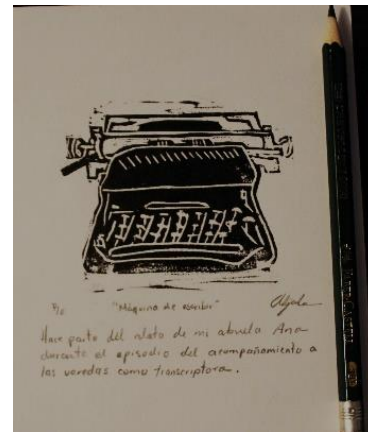 "Máquina de escribir"
Hace parte del relato de mi abuela Ana
durante el episodio del acompañamiento a
las veredas como transcriptora.